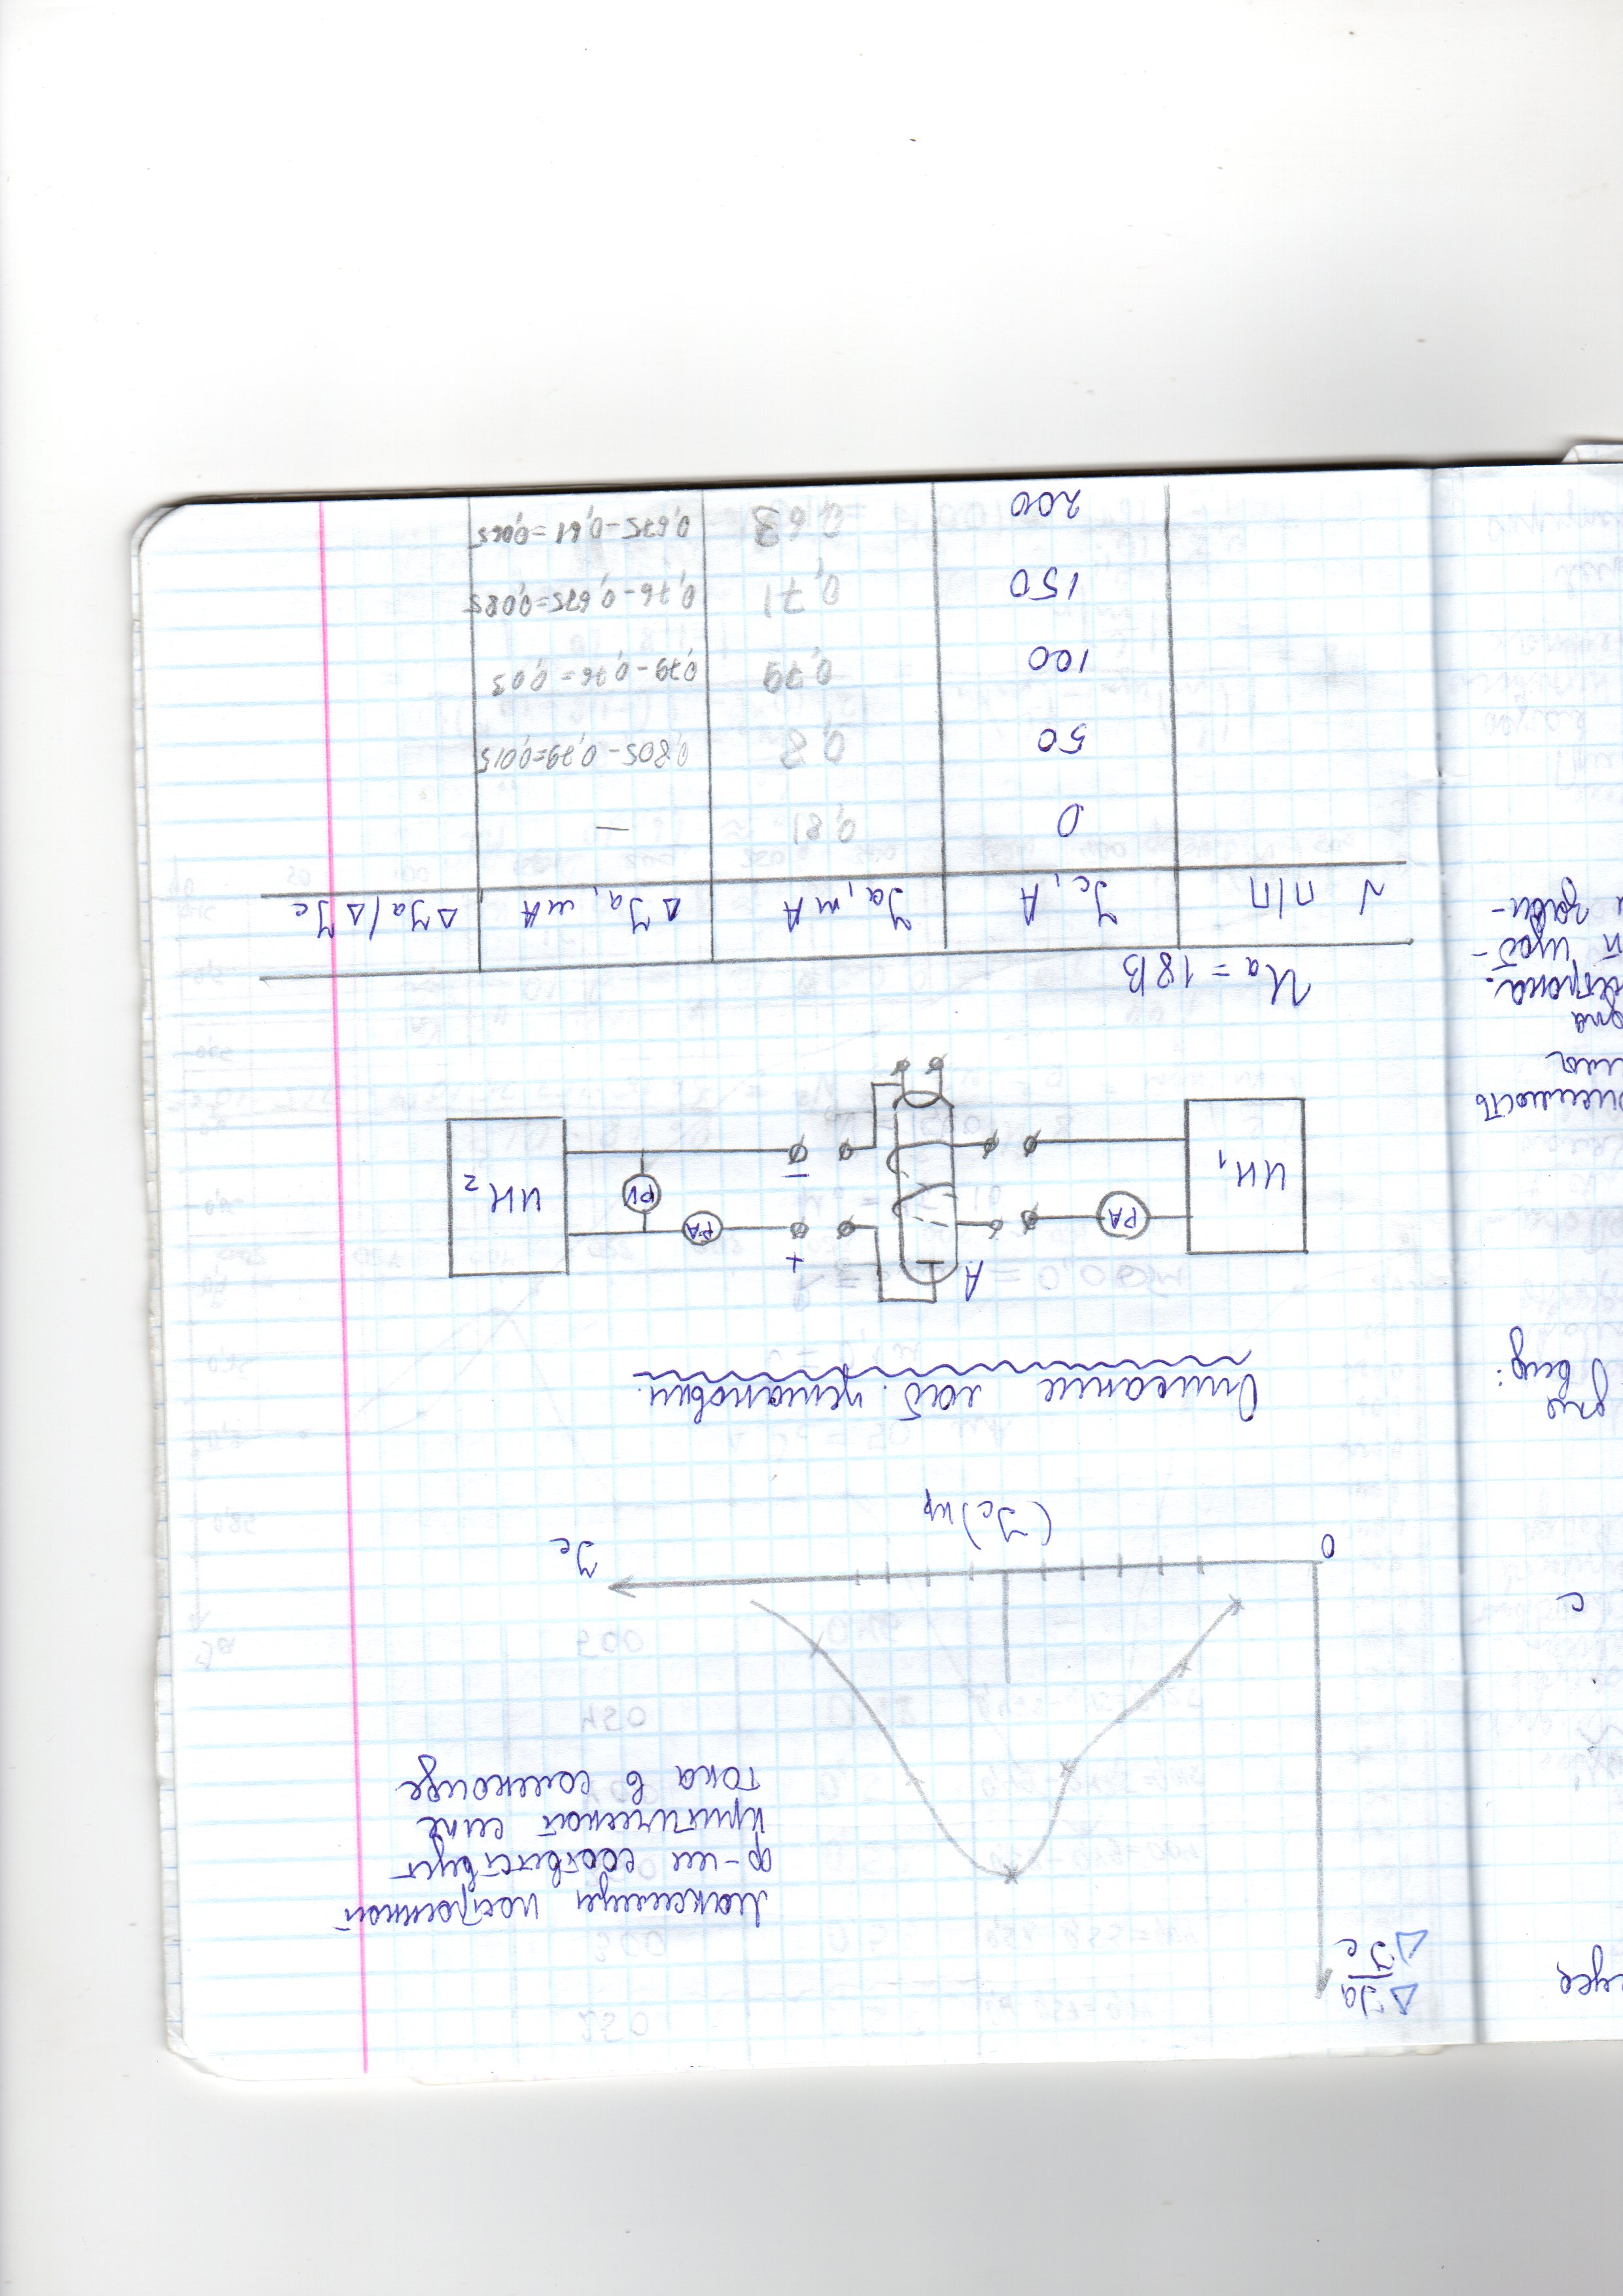 уса
с
для
вид:
висимость
илы
для
нетрона.
ΔIa
ΔIc
Максимум построенной
ф-ии соответствует
критической силе
тока в соленоиде
0
Ic
(Ic)кр
Описание лаб. установки.
A
+
ИН1
PA
PA
PV
ИН2
−
Ua = 18 В
√ п/п Ic, А Ia, мА ΔIa, мА ΔIa/ΔIc
0 0,81 —
50 0,8 0,805-0,79=0,015
100 0,79 0,79-0,76=0,03
150 0,71 0,76-0,675=0,085
200 0,63 0,675-0,61=0,065